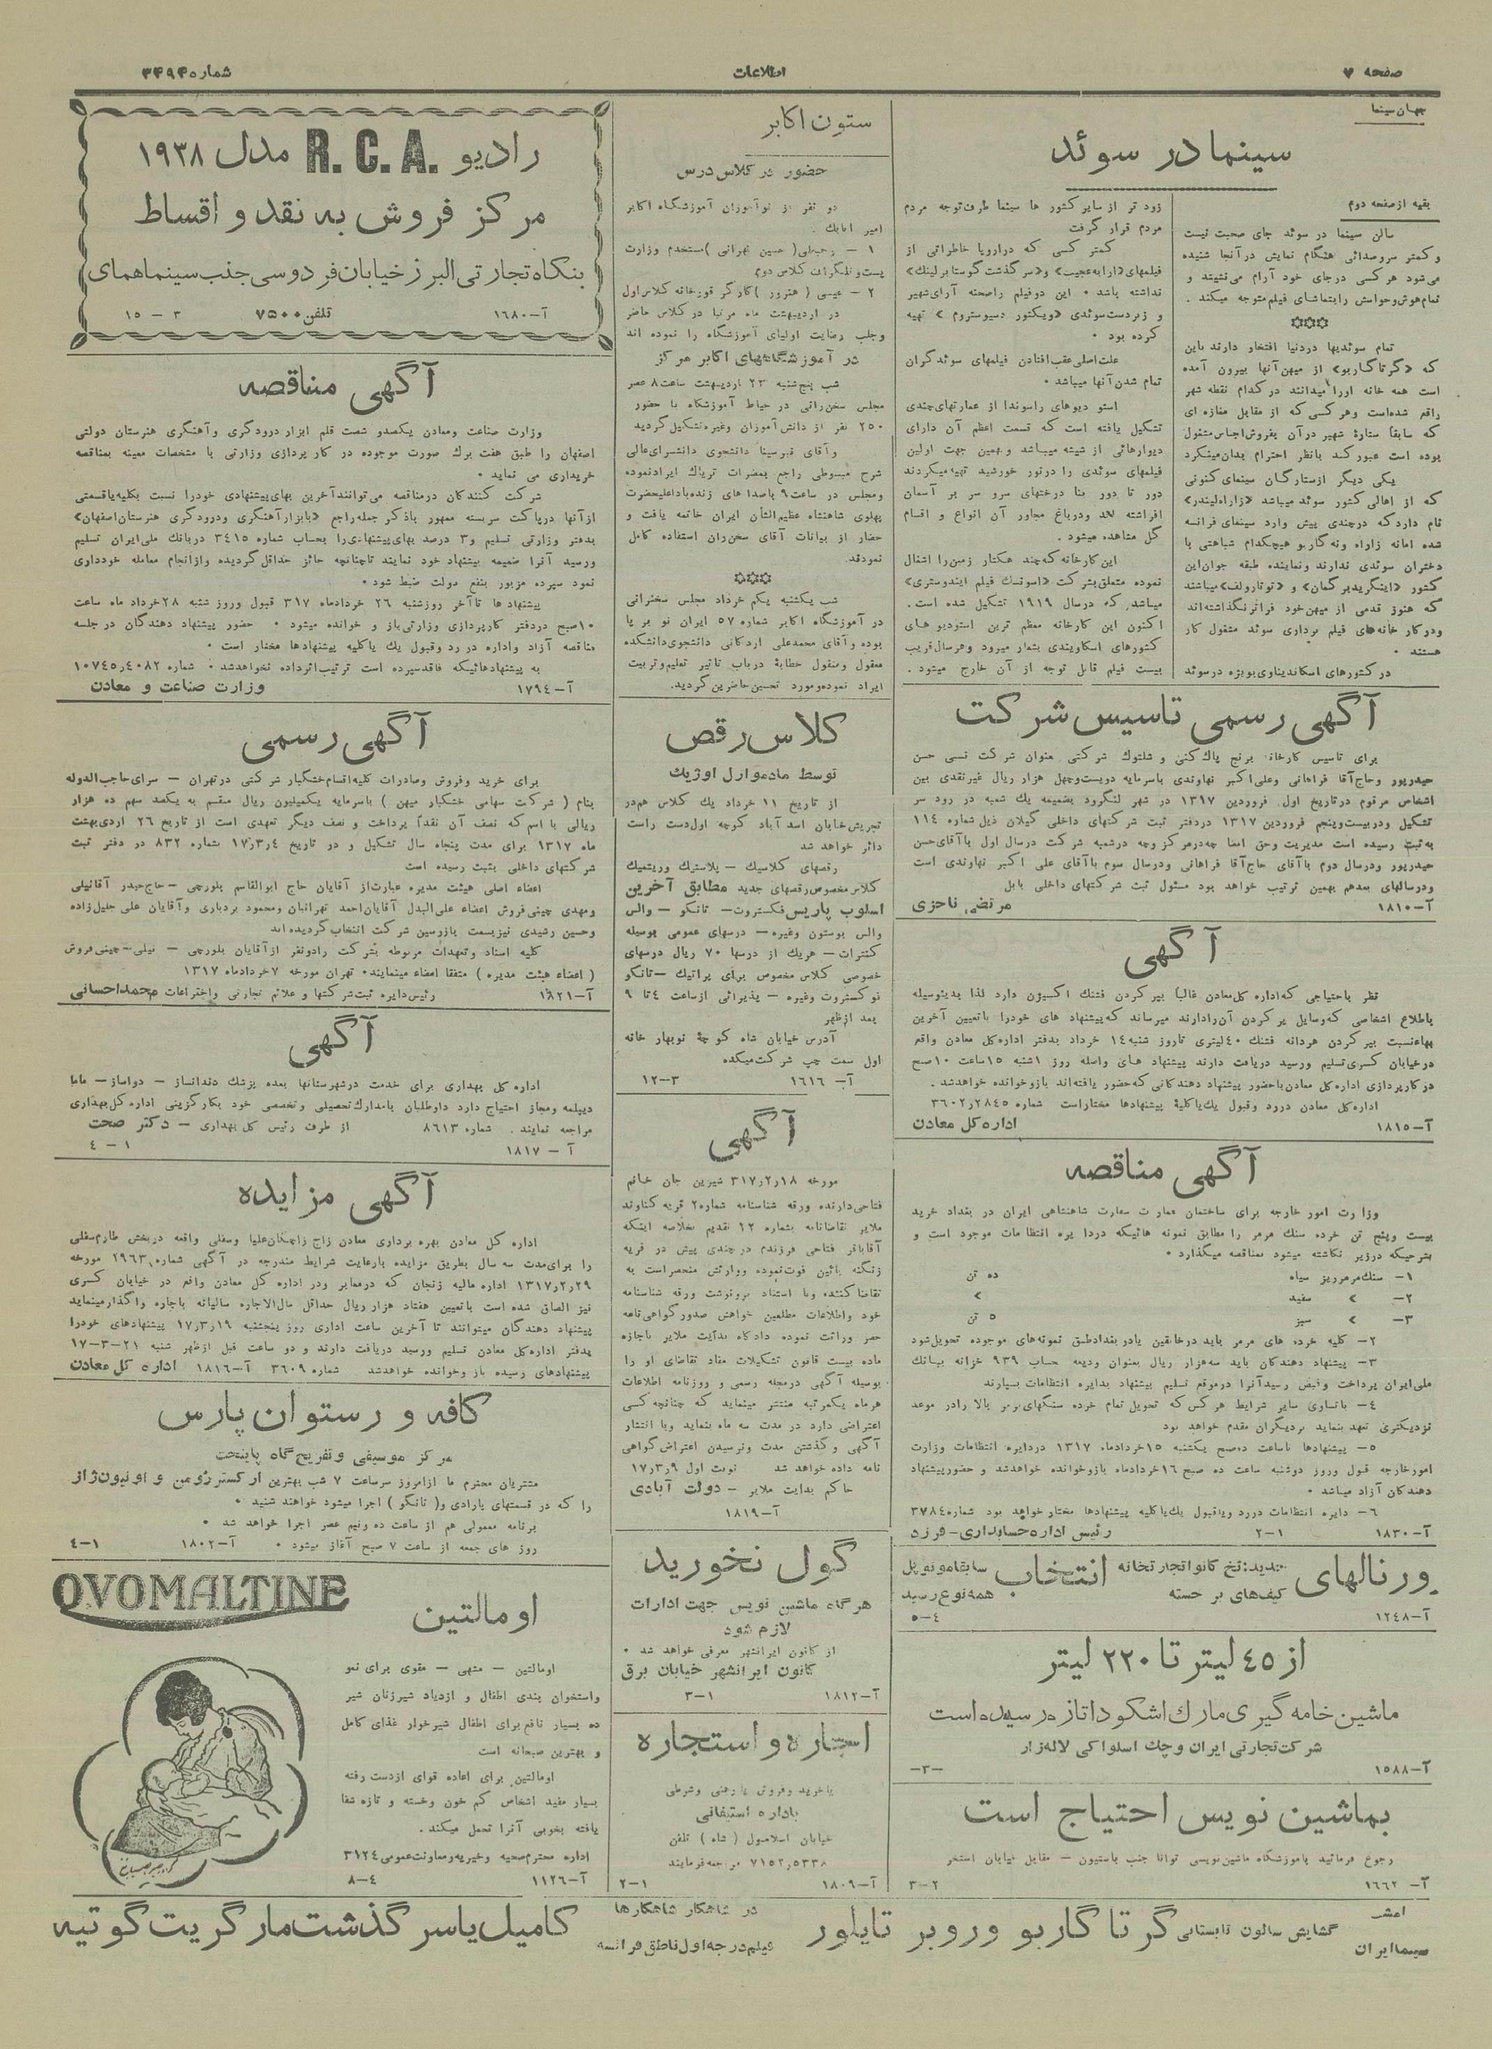 صفحه ۷
اطلاعات
شماره ۳۴۹۴
جهان سینما
سینما در سوئد
بقیه از صفحه دوم
سالن سینما در سوئد جای صحبت نیست
و کمتر سروصدائی هنگام نمایش در آنجا شنیده
می‌شود هر کسی درجای خود آرام می‌نشیند و
تمام هوش و حواس را بتماشای فیلم متوجه میکند .
تمام سوئدیها دردنیا افتخار دارند باین
که «گرتا گاربو» از میهن آنها بیرون آمده
است همه خانه اورا میدانند در کدام نقطه شهر
راقم شده‌است وهر کسی که از مقابل مغازه ای
که سابقاً ستارهٔ شهیر در آن بفروش اجناس مشغول
بوده است عبور کند بانظر احترام بدان مینگرد
یکی دیگر ازستارگان سینمای کنونی
که از اهالی کشور سوئد میباشد «زاراه لیندر»
نام دارد که درچندی پیش وارد سینمای فرانسه
شده امانه زاراه ونه گاربو هیچکدام شباهتی با
دختران سوئدی ندارند ونماینده طبقه جوان این
کشور «اینگرید برگمان» و «توتا رولف» میباشند
که هنوز قدمی از میهن خود فراتر نگذاشته‌اند
ودر کار خانه‌های فیلم برداری سوئد مشغول کار
هستند .
در کشورهای اسکاندیناوی بویژه درسوئد
زود تر از سایر کشور ها سینما طرف توجه مردم
مردم قرار گرفت
کمتر کسی که دراروپا خاطراتی از
فیلمهای «ارابه عجیب» و «سرگذشت گوستا برلینك»
نداشته باشد . این دوفیلم راصحنه آرای شهیر
و زبردست سوئدی «ویکتور دسیوستروم» تهیه
کرده بود .
علت اصلی عقب افتادن فیلمهای سوئد گران
تمام شدن آنها میباشد .
استو دیوهای راسوندا از عمارتهای چندی
تشکیل یافته است که قسمت اعظم آن دارای
دیوارهائی از شیشه میباشد وبهمین جهت اولین
فیلمهای سوئدی را درنور خورشید تهیه میکردند
دور تا دور بنا درختهای سرو سر بر آسمان
افراشته اند ودرباغ مجاور آن انواع و اقسام
گل مشاهده میشود .
این کارخانه که چند هکتار زمین را اشغال
نموده متعلق بشرکت «اسونسك فیلم ایندوستری»
میباشد که درسال ۱۹۱۹ تشکیل شده است .
اکنون این کارخانه معظم ترین استودیو های
کشورهای اسکاویندی بشمار میرود وهرسال قریب
بیست فیلم قابل توجه از آن خارج میشود .
آگهی رسمی تاسیس شرکت
برای تاسیس کارخانه برنج پاك کنی و شلتوك شرکتی بعنوان شرکت نسبی حسن
حیدرپور وحاج آقا فراهانی وعلی اکبر نهاوندی باسرمایه دویست وچهل هزار ریال غیر نقدی بین
اشخاص مرقوم درتاریخ اول فروردین ۱۳۱۷ در شهر لنگرود بضمیمه یك شعبه در رود سر
تشکیل ودربیست وپنجم فروردین ۱۳۱۷ دردفتر ثبت شرکتهای داخلی گیلان ذیل شماره ۱۱۴
به ثبت رسیده است مدیریت وحق امضا چه در مرکز وچه درشعبه شرکت درسال اول با آقای حسن
حیدرپور ودرسال دوم با آقای حاج آقا فراهانی ودرسال سوم با آقای علی اکبر نهاوندی است
ودرسالهای بعد هم بهمین ترتیب خواهد بود مسئول ثبت شرکتهای داخلی بابل
آ-۱۸۱۰ مرتضی ناحزی
آگهی
نظر باحتیاجی که اداره کل معادن غالباً بپر کردن فشنك اکسیژن دارد لذا بدینوسیله
باطلاع اشخاصی که وسایل پر کردن آن رادارند میرساند که پیشنهاد های خودرا باتعیین آخرین
بهاء نسبت بپر کردن هردانه فشنك ۴۰ لیتری تاروز شنبه ۱۴ خرداد بدفتر اداره کل معادن واقع
درخیابان کسری تسلیم ورسید دریافت دارند پیشنهاد های واصله روز ۱ شنبه ۱۵ ساعت ۱۰ صبح
در کارپردازی اداره کل معادن باحضور پیشنهاد دهندکانی که حضور یافته‌اند باز وخوانده خواهد شد .
اداره کل معادن دررد وقبول یك یا کلیهٔ پیشنهادها مختار است شماره ۳۶۰۲ر۲۸۴۵
آ-۱۸۱۵ اداره کل معادن
آگهی مناقصه
وزارت امور خارجه برای ساختمان عمارت سفارت شاهنشاهی ایران در بغداد خرید
بیست وپنج تن خرده سنك مرمر را مطابق نمونه هائیکه دردا یره انتظامات موجود است و
بشرحیکه درزیر نگاشته میشود بمناقصه میگذارد .
۱- سنك مرمر ریز سیاه ده تن
۲- > سفید >
۳- > سبز ۵ تن
۲- کلیه خرده های مرمر باید درخانقین یادر بغداد طبق نمونه‌های موجوده تحویل شود
۳- پیشنهاد دهندگان باید سه هزار ریال بعنوان ودیعه حساب ۹۳۹ خزانه ببانك
ملی ایران پرداخت وقبض رسید آنرا درموقع تسلیم پیشنهاد بدایره انتظامات بسپارند
۴- باتساوی سایر شرایط هر کس که تحویل تمام خرده سنگهای مرمر بالا رادر موعد
نزدیکتری تعهد بنماید بردیگران مقدم خواهد بود
۵- پیشنهادها تاساعت ده صبح یکشنبه ۱۵ خردادماه ۱۳۱۷ دردایره انتظامات وزارت
امور خارجه قبول وروز دوشنبه ساعت ده صبح ۱۶ خردادماه باز وخوانده خواهد شد و حضور پیشنهاد
دهندکان آزاد میباشد .
۶- دایره انتظامات دررد ویاقبول یك یا کلیه پیشنهادها مختار خواهد بود شماره ۳۷۸۴
آ-۱۸۳۰ ۲-۱ رئیس اداره حسابداری- فرزد
ورنالهای جدید: نخ کانوا تجارتخانه انتخاب سابقا مونوپل
کیف‌های بر جسته همه نوع رسید
آ-۱۲۴۸ ۵-۴
از ۴۵ لیتر تا ۲۲۰ لیتر
ماشین خامه گیری مارك اشکودا تازه رسیده است
شرکت تجارتی ایران وچك اسلواکی لاله زار
آ-۱۵۸۸ -۳-
بماشین نویس احتیاج است
رجوع فرمائید باموزشگاه ماشین نویسی توانا جنب باستیون - مقابل خیابان استخر
آ- ۱۶۶۲ ۳-۲
ستون اکابر
حضور در کلاس درس
دو نفر از نوآموزان آموزشگاه اکابر
امیر اتابك .
۱ - رجبعلی ( حسین تهرانی ) مستخدم وزارت
پست و تلگراف کلاس دوم
۲ - عیسی ( هنرور ) کارگر قورخانه کلاس اول
در اردیبهشت ماه مرتبا در کلاس حاضر
وجلب رضایت اولیای آموزشگاه را نموده اند
در آموزشگاههای اکابر مرکز
شب پنجشنبه ۲۳ اردیبهشت ساعت ۸ عصر
مجلس سخن رانی در حیاط آموزشگاه با حضور
۲۵۰ نفر از دانش آموزان وغیره تشکیل گردید
وآقای قبرسینا دانشجوی دانشسرای عالی
شرح مبسوطی راجع بمضرات تریاك ایراد نموده
ومجلس در ساعت ۹ باصدا های زنده باد اعلیحضرت
پهلوی شاهنشاه عظیم الشأن ایران خاتمه یافت و
حضار از بیانات آقای سخن ران استفاده کامل
نمودند.
شب یکشنبه یکم خرداد مجلس سخنرانی
در آموزشگاه اکابر شماره ۵۷ ایران نو بر پا
بوده وآقای محمدعلی اردکانی دانشجوی دانشکده
معقول ومنقول خطابهٔ درباب تاثیر تعلیم وتربیت
ایراد نموده ومورد تحسین حاضرین گردید.
کلاس رقص
توسط مادموازل اوژنیك
از تاریخ ۱۱ خرداد یك کلاس هم در
تجریش خیابان اسد آباد کوچه اول دست راست
دائر خواهد شد
رقصهای کلاسیك - پلاستیك وریتمیك
کلاس مخصوص رقصهای جدید مطابق آخرین
اسلوب پاریس فکستروت- تانکو - والس
والس بوستون وغیره - درسهای عمومی بوسیله
کنترات- هریك از درسها ۷۰ ریال درسهای
خصوصی کلاس مخصوص برای پراتیك - تانکو
فوکستروت وغیره - پذیرائی از ساعت ۴ تا ۹
بعد ازظهر
آدرس خیابان شاه کوچهٔ نوبهار خانه
اول سمت چپ شرکت میکده
آ- ۱۶۱۶ ۱۲-۳
آگهی
مورخه ۳۱۷ر۲ر۱۸ شیرین جان خانم
فتاحی دارنده ورقه شناسنامه شماره ۲ قریه کناوند
ملایر تقاضانامه بشماره ۱۲ تقدیم بخلاصه اینکه
آقاباقر فتاحی فرزندم درچندی پیش در قریه
زنگنه پائین فوت نموده ووارثش منحصر است به
تقاضا کننده وبا استناد برونوشت ورقه شناسنامه
خود واطلاعات مطلعین خواهش صدور گواهی نامه
حصر وراثت نموده دادگاه بدایت ملایر باجازه
ماده بیست قانون تشکیلات مفاد تقاضای او را
بوسیله آگهی درمجله رسمی و روزنامه اطلاعات
هرماه یکمرتبه منتشر مینماید که چنانچه کسی
اعتراضی دارد در مدت سه ماه بنماید وبا انتشار
آگهی وگذشتن مدت ونرسیدن اعتراض گواهی
نامه داده خواهد شد نوبت اول ۱۷ر۳ر۹
حاکم بدایت ملایر - دولت آبادی
آ-۱۸۱۹
گول نخورید
هر گاه ماشین نویس جهت ادارات
لازم شود
از کانون ایرانشهر معرفی خواهد شد .
کانون ایرانشهر خیابان برق
آ-۱۸۱۲ ۳-۱
اجاره و استجاره
یا خرید وفروش یا رهنی وشرطی
باداره استیفائی
خیابان اسلامبول ( شاه ) تلفن
۵۳۳۸ر۷۱۵۲ مراجعه فرمایند
آ-۱۸۰۹ ۲-۱
رادیو R. C. A. مدل ۱۹۳۸
مرکز فروش به نقد و اقساط
بنگاه تجارتی البرز خیابان فردوسی جنب سینما همای
آ-۱۶۸۰ تلفن ۷۵۰۰ ۱۵ - ۳
آگهی مناقصه
وزارت صناعت ومعادن یکصدو شصت قلم ابزار درودگری وآهنگری هنرستان دولتی
اصفهان را طبق هفت برك صورت موجوده در کار پردازی وزارتی با مشخصات معینه بمناقصه
خریداری می نماید .
شرکت کنندکان درمناقصه می‌توانند آخرین بهای پیشنهادی خودرا نسبت بکلیه یاقسمتی
از آنها درپاکت سربسته ممهور باذکر جمله راجع «بابزار آهنگری ودرودگری هنرستان اصفهان»
بدفتر وزارتی تسلیم و۳ درصد بهای پیشنهادی را بحساب شماره ۳۴۱۵ دربانك ملی ایران تسلیم
ورسید آنرا ضمیمه پیشنهاد خود نمایند تاچنانچه حائز حداقل گردیده وازانجام معامله خودداری
نمود سپرده مزبور بنفع دولت ضبط شود .
پیشنهاد ها تا آخر روز شنبه ۲۶ خردادماه ۳۱۷ قبول وروز شنبه ۲۸ خرداد ماه ساعت
۱۰ صبح دردفتر کارپردازی وزارتی باز و خوانده میشود . حضور پیشنهاد دهندکان در جلسه
مناقصه آزاد واداره در رد وقبول یك یا کلیه پیشنهادها مختار است .
به پیشنهادهائیکه فاقد سپرده است ترتیب اثر داده نخواهد شد . شماره ۱۰۷۴۵ر۴۰۸۲
آ-۱۷۹۴ وزارت صناعت و معادن
آگهی رسمی
برای خرید وفروش وصادرات کلیه اقسام خشگبار شرکتی درتهران - سرای حاجب الدوله
بنام ( شرکت سهامی خشکبار میهن ) باسرمایه یکمیلیون ریال منقسم به یکصد سهم ده هزار
ریالی با اسم که نصف آن نقداً پرداخت و نصف دیگر تعهدی است از تاریخ ۲۶ اردیبهشت
ماه ۱۳۱۷ برای مدت پنجاه سال تشکیل و در تاریخ ۱۷ر۳ر۴ بشماره ۸۳۲ در دفتر ثبت
شرکتهای داخلی بثبت رسیده است
اعضاء اصلی هیئت مدیره عبارت از آقایان حاج ابوالقاسم بلورچی - حاج حیدر آقانیلی
ومهدی چینی فروش اعضاء علی البدل آقایان احمد تهرانیان ومحمود بردباری وآقایان علی جلیل زاده
وحسین رشیدی نیز بسمت بازرسین شرکت انتخاب گردیده اند
کلیه اسناد وتعهدات مربوطه بشرکت رادونفر از آقایان بلورچی - نیلی - چینی فروش
( اعضاء هیئت مدیره ) متفقا امضاء مینمایند . تهران مورخه ۷ خرداد ماه ۱۳۱۷
آ-۱۸۲۱ رئیس دایره ثبت شرکتها و علائم تجارتی واختراعات محمد احسانی
آگهی
اداره کل بهداری برای خدمت درشهرستانها بعده پزشك دندانساز - دواساز- ماما
دیپلمه ومجاز احتیاج دارد داوطلبان بامدارك تحصیلی وتخصصی خود بکارگزینی اداره کل بهداری
مراجعه نمایند . شماره ۸۶۱۳ از طرف رئیس کل بهداری - دکتر صحت
آ - ۱۸۱۷ ۴ - ۱
آگهی مزایده
اداره کل معادن بهره برداری معادن زاج زاجکان علیا وسفلی واقعه دربخش طارم سفلی
را برای مدت سه سال بطریق مزایده بارعایت شرایط مندرجه در آگهی شماره ۲۹۶۳ مورخه
۱۳۱۷ر۲ر۲۹ اداره مالیه زنجان که درمعابر ودر اداره کل معادن واقع در خیابان کسری
نیز الصاق شده است باتعیین هفتاد هزار ریال حداقل مال الاجاره سالیانه باجاره واگذار مینماید
پیشنهاد دهندکان میتوانند تا آخرین ساعت اداری روز پنجشنبه ۱۷ر۳ر۱۹ پیشنهادهای خودرا
بدفتر اداره کل معادن تسلیم ورسید دریافت دارند و دو ساعت قبل ازظهر شنبه ۲۱-۳-۱۷
پیشنهادهای رسیده باز وخوانده خواهد شد شماره ۳۶۰۹ آ-۱۸۱۶ اداره کل معادن
کافه و رستوان پارس
مرکز موسیقی وتفریح گاه پایتخت
مشتریان محترم ما ازامروز سرساعت ۷ شب بهترین ارکستر ژومن و اونیون ژاز
را که در قسمتهای پارادی و( تانگو ) اجرا میشود خواهند شنید .
برنامه معمولی هم از ساعت ده ونیم عصر اجرا خواهد شد .
روز های جمعه از ساعت ۷ صبح آغاز میشود . آ-۱۸۰۲ ۴-۱
OVOMALTINE
اومالتین
اومالتین - مشهی - مقوی برای نمو
واستخوان بندی اطفال و ازدیاد شیر زنان شیر
ده بسیار نافع برای اطفال شیرخوار غذای کامل
و بهترین صبحانه است
اومالتین برای اعاده قوای ازدست رفته
بسیار مفید اشخاص کم خون وخسته و تازه شفا
یافته بخوبی آنرا تحمل میکند .
اداره محترم صحیه وخیریه ومعاونت عمومی ۳۱۲۴
آ-۱۱۲۶ ۸-۴
امشب
سینما ایران
گشایش سالون تابستانی گرتا گاربو وروبر تایلور
در شاهکار شاهکارها
فیلم درجه اول ناطق فرانسه
کامیل یاسرگذشت مارگریت گوتیه